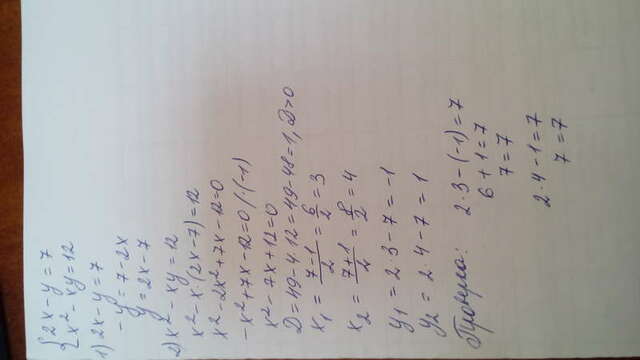 {2x-y=7
{x²-xy=12
1) 2x-y=7
-y=7-2x
y=2x-7
2) x²-xy=12
x²-x(2x-7)=12
x²-2x²+7x-12=0
-x²+7x-12=0 /·(-1)
x²-7x+12=0
D=49-4·12=49-48=1, D>0
x₁ = (7-1)/2 = 6/2 = 3
x₂ = (7+1)/2 = 8/2 = 4
y₁ = 2·3-7=-1
y₂ = 2·4-7=1
Проверка: 2·3-(-1)=7
6+1=7
7=7
2·4-1=7
7=7